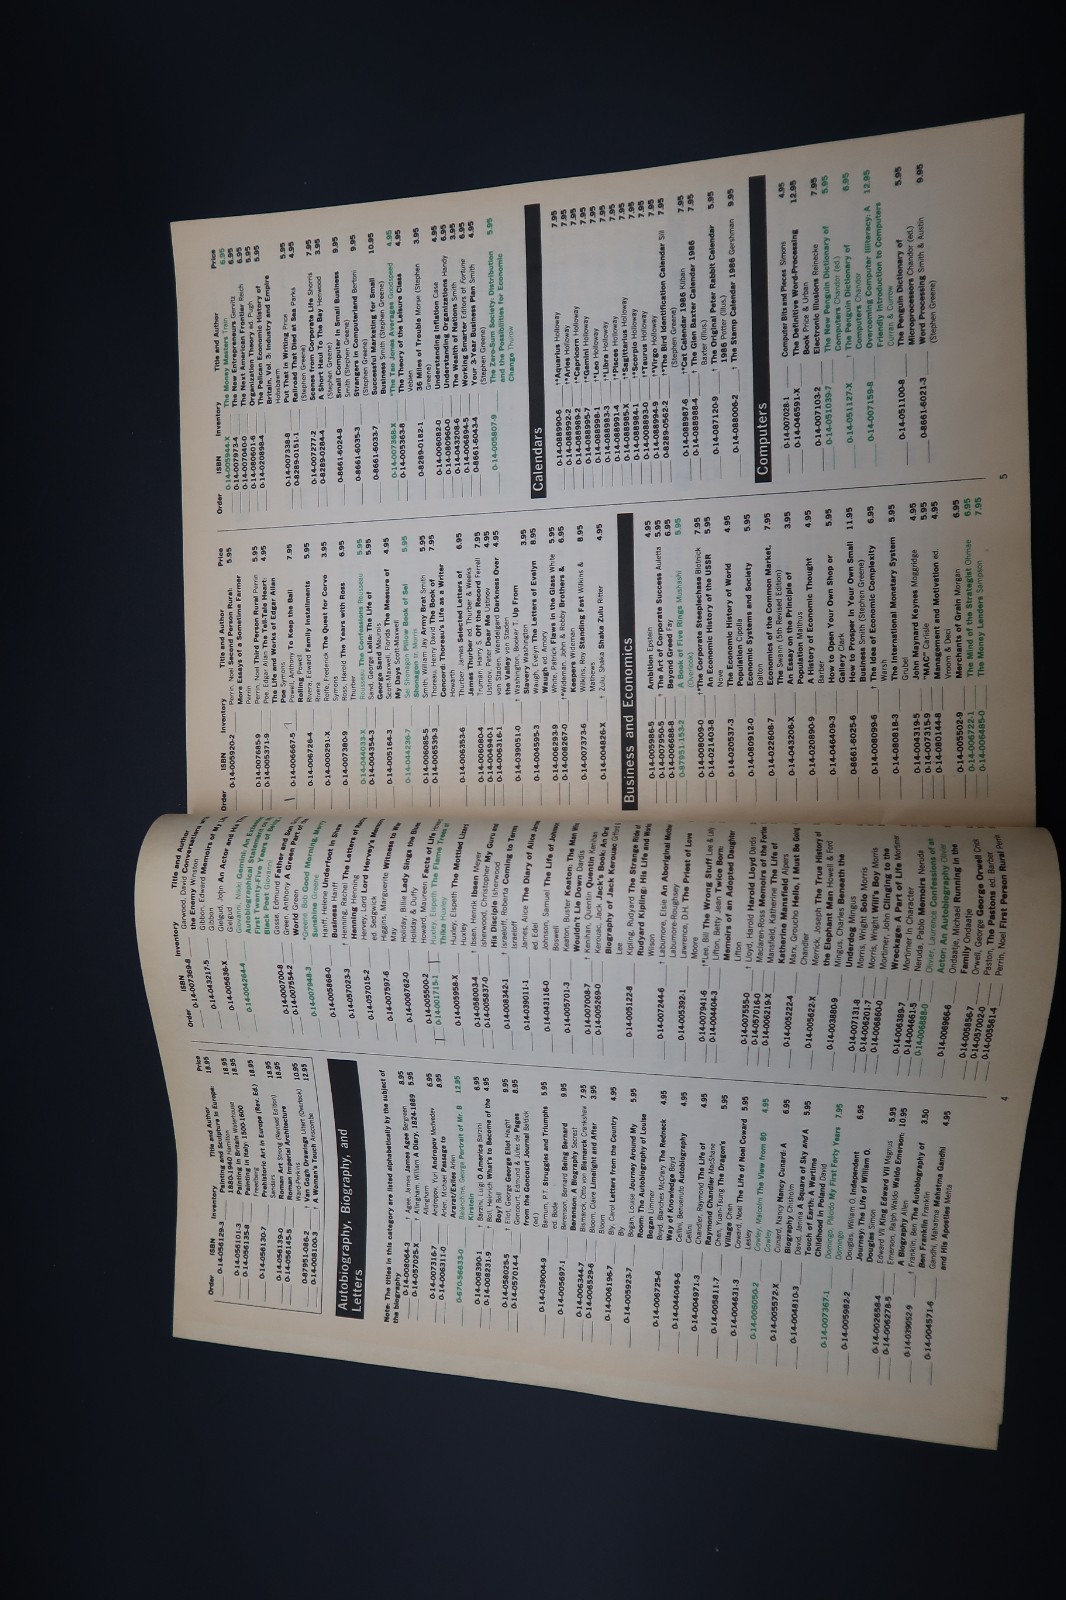 Order ISBN Inventory Title and Author Price
0-14-056129-3 Painting and Sculpture in Europe: 18.95
1880-1940 Hamilton
0-14-056101-3 Painting in Britain Waterhouse 18.95
0-14-056135-8 Painting in Italy 1500-1600 18.95
Freedberg
0-14-056130-7 Prehistoric Art in Europe (Rev. Ed.) 18.95
Sandars
0-14-056139-0 Roman Art Strong (Revised Edition) 18.95
0-14-056145-5 Roman Imperial Architecture 18.95
Ward-Perkins
0-87951-086-2 † Van Gogh Drawings Litert (Overlook) 10.95
0-14-008100-3 † A Woman's Touch Anscombe 12.95
Autobiography, Biography, and
Letters
Note: The titles in this category are listed alphabetically by the subject of
the biography
0-14-008064-3 † Agee, James James Agee Bergreen 8.95
0-14-057025-X † Allingham, William A Diary, 1824-1889 5.95
Allingham
0-14-007316-7 Andropov, Yuri Andropov Medvedev 6.95
0-14-006311-0 Arlen, Michael Passage to 8.95
Ararat/Exiles Arlen
0-670-56633-0 Balanchine, George Portrait of Mr. B 12.95
Kirstein
0-14-008390-1 † Barzini, Luigi O America Barzini 6.95
0-14-008231-9 † Boll, Heinrich What's to Become of the 4.95
Boy? Boll
0-14-058025-5 † Eliot, George George Eliot Haight 9.95
0-14-057014-4 † Goncourt, Edmund & Jules de Pages 8.95
from the Goncourt Journal Baldick
(ed)
0-14-039004-9 Barnum, P.T. Struggles and Triumphs 5.95
ed. Bode
0-14-005697-1 Berenson, Bernard Being Bernard 9.95
Berenson: A Biography Secrest
0-14-006344-7 Bismarck, Otto von Bismarck Crankshaw 7.95
0-14-006529-6 Bloom, Claire Limelight and After 3.95
Bloom
0-14-006196-7 Bly, Carol Letters from the Country 4.95
Bly
0-14-005923-7 Bogan, Louise Journey Around My 5.95
Room: The Autobiography of Louise
Bogan Limmer
0-14-006725-6 Boyd, Blanche McCrary The Redneck 4.95
Way of Knowledge Boyd
0-14-044049-6 Cellini, Benvenuto Autobiography 4.95
Cellini
0-14-004971-3 Chandler, Raymond The Life of 4.95
Raymond Chandler MacShane
0-14-005811-7 Chen, Yuan-Tsung The Dragon's 5.95
Village Chen
0-14-004631-3 Coward, Noel The Life of Noel Coward 5.95
Lesley
0-14-006050-2 Cowley, Malcolm The View from 80 4.95
Cowley
0-14-005572-X Cunard, Nancy Nancy Cunard: A 6.95
Biography Chisholm
0-14-004810-3 David, Janina A Square of Sky and A 5.95
Touch of Earth: A Wartime
Childhood in Poland David
0-14-007367-1 Domingo, Placido My First Forty Years 7.95
Domingo
0-14-005982-2 Douglas, William O. Independent 6.95
Journey: The Life of William O.
Douglas Simon
0-14-002658-4 Edward VII King Edward VII Magnus 5.95
0-14-006278-5 Emerson, Ralph Waldo Waldo Emerson: 10.95
A Biography Allen
0-14-039052-9 † Franklin, Ben The Autobiography of 3.50
Ben Franklin Franklin
0-14-004571-6 Gandhi, Mahatma Mahatma Gandhi 4.95
and His Apostles Mehta
Order ISBN Inventory Title and Author
0-14-007369-8 Garwood, David Conversations
the Enemy Winston
0-14-043217-5 Gibbon, Edward Memoirs of My
Gibbon
0-14-005636-X Gielgud, John An Actor and His
Gielgud
0-14-004264-4 Giovanni, Nikki Gemini: An
Autobiographical Statement
First Twenty-Five Years of
Black Poet Giovanni
0-14-000700-8 Gosse, Edmund Father and Son
0-14-007554-2 Green, Anthony A Green Part of
World Green
0-14-007948-3 Greene, Bob Good Morning, Merry
Sunshine Greene
0-14-005868-0 Hanff, Helene Underfoot in Show
Business Hanff
0-14-057023-3 † Henning, Rachel The Letters of
Henning Henning
0-14-057015-2 Hervey, Lord Lord Hervey's
ed. Sedgwick
0-14-007597-6 Higgins, Marguerite Witness to
May
0-14-006762-0 Holiday, Billie Lady Sings the Blues
Holiday & Dufty
0-14-005500-2 Howard, Maureen Facts of Life
0-14-001715-1 Huxley, Elspeth The Flame Trees of
Thika Huxley
0-14-005958-X Huxley, Elspeth The Mottled Lizard
Huxley
0-14-058003-4 Ibsen, Henrik Ibsen Meyer
0-14-005837-0 Isherwood, Christopher My Guru and
His Disciple Isherwood
0-14-008342-1 † Israeloff, Roberta Coming to Terms
Israeloff
0-14-039011-1 James, Alice The Diary of Alice James
ed. Edel
0-14-043116-0 Johnson, Samuel The Life of Johnson
Boswell
0-14-005701-3 Keaton, Buster Keaton: The Man Who
Wouldn't Lie Down Dardis
0-14-007008-7 † Kenihan, Quentin Quentin Kenihan
0-14-005269-0 Kerouac, Jack Jack's Book: An Oral
Biography of Jack Kerouac Gifford
Lee
0-14-005122-8 Kipling, Rudyard The Strange Ride of
Rudyard Kipling: His Life and Works
Wilson
0-14-007244-6 † Labumore, Elsie An Aboriginal Mother
Labumore: Roughsey
0-14-005392-1 Lawrence, D.H. The Priest of Love
Moore
0-14-007941-6 †*Lee, Bill The Wrong Stuff Lee & Lally
0-14-004404-3 Lifton, Betty Jean Twice Born:
Memoirs of an Adopted Daughter
Lifton
0-14-007555-0 † Lloyd, Harold Harold Lloyd Dardis
0-14-057016-0 Maclaren-Ross Memoirs of the Forties
0-14-006219-X Mansfield, Katherine The Life of
Katherine Mansfield Alpers
0-14-005222-4 Marx, Groucho Hello, I Must Be Going
Chandler
0-14-005622-X Merrick, Joseph The True History of
the Elephant Man Howell & Ford
0-14-003880-9 Mingus, Charles Beneath the
Underdog Mingus
0-14-007131-8 Morris, Wright Solo Morris
0-14-006201-7 Morris, Wright Will's Boy Morris
0-14-006860-0 Mortimer, John Clinging to the
Wreckage: A Part of Life Mortimer
0-14-006389-7 Mortimer In Character
0-14-004661-5 Neruda, Pablo Memoirs Neruda
0-14-006888-0 Olivier, Laurence Confessions of an
Actor: An Autobiography Olivier
0-14-006966-6 Ondaatje, Michael Running in the
Family Ondaatje
0-14-005856-7 Orwell, George George Orwell Crick
0-14-057002-0 Paston, The Pastons ed. Barber
0-14-005561-4 Perrin, Noel First Person Rural Perrin
4
Order ISBN Inventory Title and Author Price
0-14-005920-2 Perrin, Noel Second Person Rural: 5.95
More Essays of a Sometime Farmer
Perrin
0-14-007685-9 Perrin, Noel Third Person Rural Perrin 5.95
0-14-005371-9 Poe, Edgar Allan The Tell-Tale Heart: 4.95
The Life and Works of Edgar Allan
Poe Symons
0-14-006667-5 Powell, Anthony To Keep the Ball 7.95
Rolling Powell
0-14-006726-4 Rivera, Edward Family Installments 5.95
Rivera
0-14-000291-X Rolfe, Frederick The Quest for Corvo 3.95
Symons
0-14-007380-9 Ross, Harold The Years with Ross 6.95
Thurber
0-14-044033-X Rousseau The Confessions Rousseau 5.95
0-14-004354-3 Sand, George Lelia: The Life of 5.95
George Sand Maurois
0-14-005164-3 Scott-Maxwell, Florida The Measure of 4.95
My Days Scott-Maxwell
0-14-044236-7 Sei Shonagon Pillow Book of Sei 5.95
Shonagon tr. Morris
0-14-006085-5 Smith, William Jay Army Brat Smith 5.95
0-14-006539-3 Thoreau, Henry David The Book of 7.95
Concord: Thoreau's Life as a Writer
Howarth
0-14-006353-6 Thurber, James Selected Letters of 6.95
James Thurber ed Thurber & Weeks
0-14-006080-4 Truman, Harry S. Off the Record Ferrell 7.95
0-14-004940-1 Ustinov, Peter Dear Me Ustinov 4.95
0-14-006316-1 von Staden, Wendelgard Darkness Over 4.95
the Valley von Staden
0-14-039051-0 † Washington, Booker T. Up From 3.95
Slavery Washington
0-14-004595-3 Waugh, Evelyn The Letters of Evelyn 8.95
Waugh ed. Amory
0-14-006293-9 White, Patrick Flaws in the Glass White 5.95
0-14-008267-0 †*Wideman, John & Robby Brothers & 6.95
Keepers Wideman
0-14-007373-6 Wilkins, Roy Standing Fast Wilkins & 8.95
Mathews
0-14-004826-X † Zulu, Shaka Shaka Zulu Ritter 4.95
Business and Economics
0-14-005986-5 Ambition Epstein 4.95
0-14-007950-5 † The Art of Corporate Success Auletta 5.95
0-14-006688-8 Beyond Greed Fay 6.95
0-87951-153-2 A Book of Five Rings Musashi 5.95
(Overlook)
0-14-008009-0 †*The Corporate Steeplechase Blotnick 7.95
0-14-021403-8 An Economic History of the USSR 5.95
Nove
0-14-020537-3 The Economic History of World 4.95
Population Cipolla
0-14-080912-0 Economic Systems and Society 5.95
Dalton
0-14-022608-7 Economics of the Common Market, 7.95
The Swann (5th Revised Edition)
0-14-043206-X An Essay on the Principle of 3.95
Population Malthus
0-14-020890-9 A History of Economic Thought 4.95
Barber
0-14-046409-3 How to Open Your Own Shop or 5.95
Gallery Clark
0-8661-6025-6 How to Prosper In Your Own Small 11.95
Business Smith (Stephen Greene)
0-14-008099-6 † The Idea of Economic Complexity 6.95
Warsh
0-14-080818-3 The International Monetary System 5.95
Grubel
0-14-004319-5 John Maynard Keynes Moggridge 4.95
0-14-007315-9 *MAC† Carlisle 5.95
0-14-080144-8 Management and Motivation ed. 4.95
Vroom & Deci
0-14-005502-9 Merchants of Grain Morgan 6.95
0-14-006722-1 The Mind of the Strategist Ohmae 6.95
0-14-006485-0 The Money Lenders Sampson 7.95
Order ISBN Inventory Title and Author Price
0-14-005944-X The Moneymasters Train 6.95
0-14-007973-4 The New Entrepreneurs Gevirtz 6.95
0-14-007040-0 The Next American Frontier Reich 6.95
0-14-080601-6 Organization Theory ed. Pugh 5.95
0-14-020898-4 The Pelican Economic History of 5.95
Britain, Vol 3: Industry and Empire
Hobsbawm
0-14-007338-8 Put That in Writing Price 5.95
0-8289-0151-1 Railroad That Died at Sea Parks 4.95
(Stephen Greene)
0-14-007277-2 Scenes from Corporate Life Shorris 7.95
0-8289-0284-4 A Short Haul To The Bay Henwood 3.95
(Stephen Greene)
0-8661-6024-8 Small Computer In Small Business 9.95
Smith (Stephen Greene)
0-8661-6035-3 Strangers in Computerland Bertoni 9.95
(Stephen Greene)
0-8661-6033-7 Successful Marketing for Small 10.95
Business Smith (Stephen Greene)
0-14-007368-X *The Tax Jones Averages Goodspeed 4.95
0-14-005363-8 The Theory of the Leisure Class 4.95
Veblen
0-8289-0182-1 36 Miles of Trouble Morse (Stephen 3.95
Greene)
0-14-006082-0 Understanding Inflation Case 4.95
0-14-080960-0 Understanding Organizations Handy 6.95
0-14-043208-6 The Wealth of Nations Smith 3.95
0-14-006894-5 Working Smarter Editors of Fortune 6.95
0-8661-6043-4 Your 3-Year Business Plan Smith 4.95
(Stephen Greene)
0-14-005807-9 The Zero-Sum Society: Distribution 5.95
and the Possibilities for Economic
Change Thurow
Calendars
0-14-088990-6 †*Aquarius Holloway 7.95
0-14-088992-2 †*Aries Holloway 7.95
0-14-088989-2 †*Capricorn Holloway 7.95
0-14-088995-7 †*Gemini Holloway 7.95
0-14-088998-1 †*Leo Holloway 7.95
0-14-088983-3 †*Libra Holloway 7.95
0-14-088991-4 †*Pisces Holloway 7.95
0-14-088985-X †*Sagittarius Holloway 7.95
0-14-088984-1 †*Scorpio Holloway 7.95
0-14-088993-0 †*Taurus Holloway 7.95
0-14-088994-9 †*Virgo Holloway 7.95
0-8289-0562-2 †*The Bird Identification Calendar Sil 7.95
(Stephen Greene)
0-14-088987-6 †*Cat Calendar 1986 Kliban 7.95
0-14-088988-4 † The Glen Baxter Calendar 1986 7.95
Baxter (Illus.)
0-14-087120-9 † The Original Peter Rabbit Calendar 5.95
1986 Potter (Illus.)
0-14-088006-2 † The Stamp Calendar 1986 Gershman 9.95
Computers
0-14-007028-1 Computer Bits and Pieces Simons 4.95
0-14-046591-X The Definitive Word-Processing 12.95
Book Price & Urban
0-14-007103-2 Electronic Illusions Reinecke 7.95
0-14-051039-7 The New Penguin Dictionary of 5.95
Computers Chandor (ed.)
0-14-051127-X † The Penguin Dictionary of 6.95
Computers Chandor
0-14-007159-8 Overcoming Computer Illiteracy: A 12.95
Friendly Introduction to Computers
Curran & Curnow
0-14-051100-8 The Penguin Dictionary of 5.95
Microprocessors Chandor (ed.)
0-8661-6021-3 Word Processing Smith & Austin 9.95
(Stephen Greene)
5